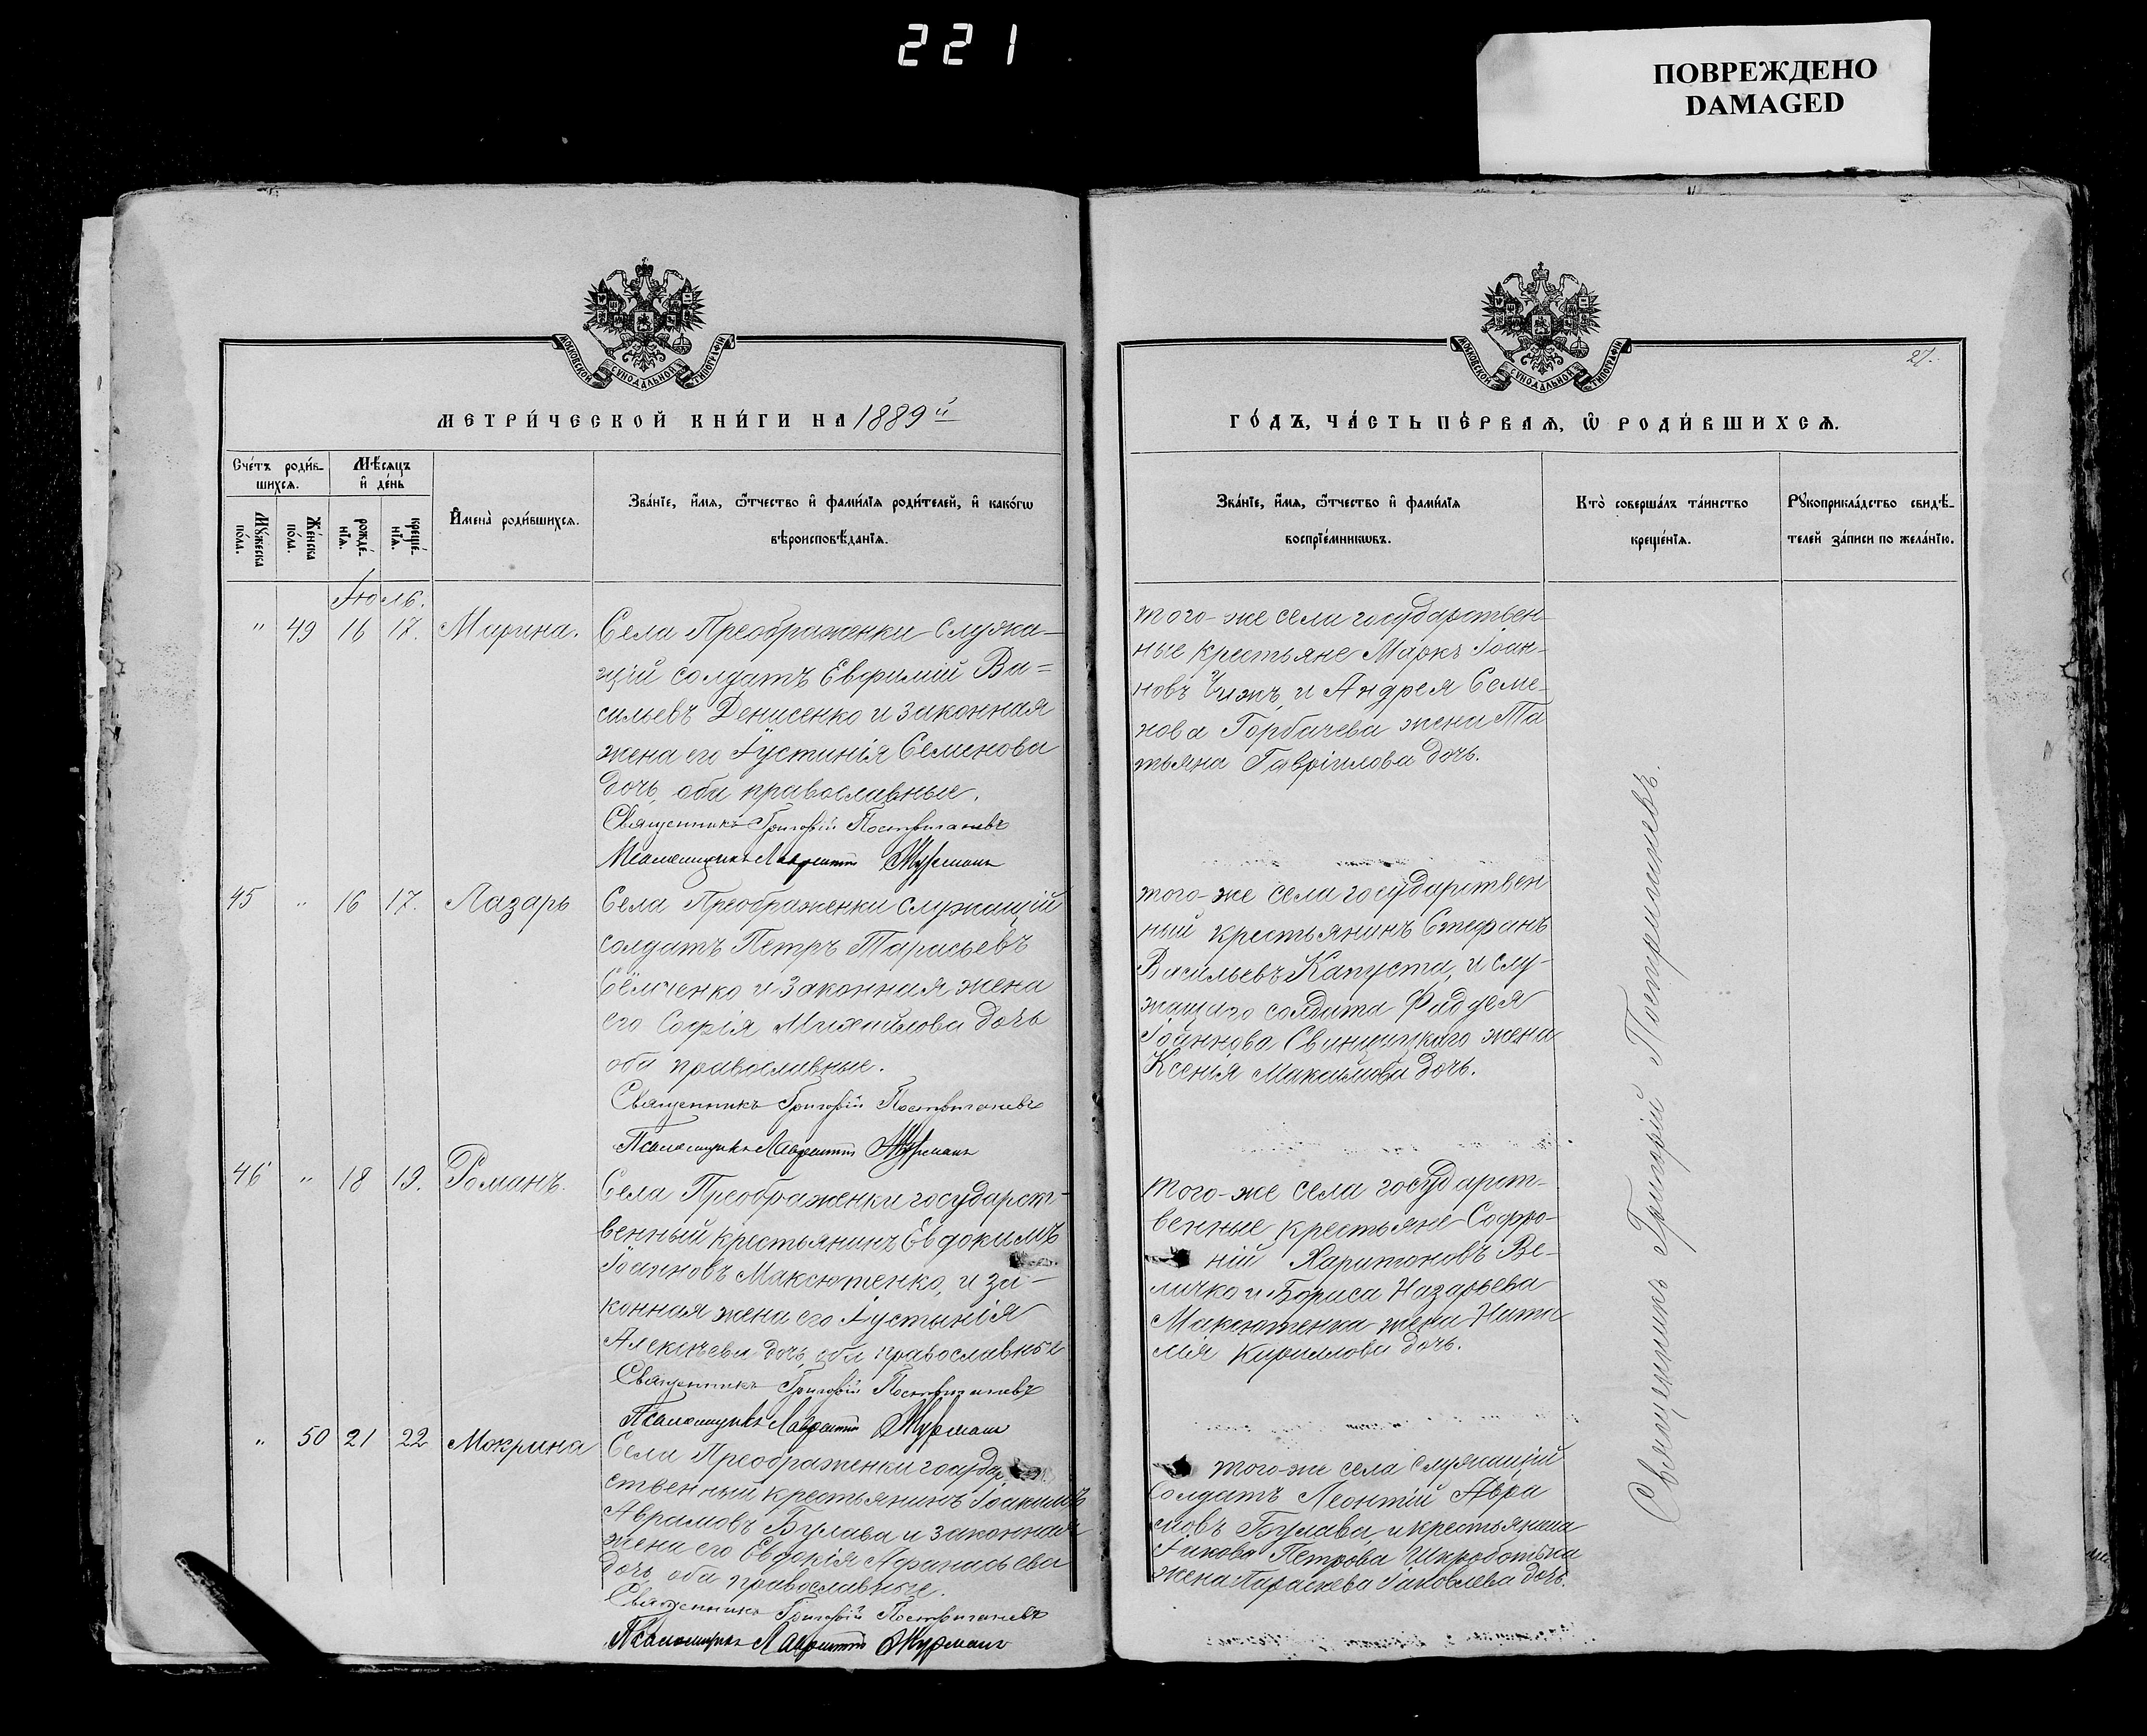 221
ПОВРЕЖДЕНО
DAMAGED
МОСКОВСКОЙ СУНОДАЛЬНОЙ ТИПОГРАФІИ
МЕТРИ́ЧЕСКОЙ КНИ́ГИ НА 1889й
Сче́тъ роди́в-
шихсѧ.
Мѣ́сѧцъ
и҆ де́нь
Мꙋ́жеска
по́ла.
Же́нска
по́ла.
рожде́-
нїѧ.
креще́-
нїѧ.
И҆мена̀ роди́вшихсѧ.
Зва́нїе, и҆́мѧ, ѻ҆́тчество и҆ фами́лїѧ роди́телей, и҆ како́гѡ
вѣроисповѣ́данїѧ.
Іюль.
" 49 16 17. Марина.
Села Преображенки служа-
щій солдатъ Евфимій Ва=
сильевъ Денисенко и законная
жена его Іустинія Семенова
дочь, оба православные.
Священникъ Григорій
Псаломщикъ Лаврентій
45 " 16 17. Лазарь
Села Преображенки служащій
солдатъ Петръ Тарасьевъ
и законная жена
его Софія Михайлова дочь
оба православные.
Священникъ Григорій
Псаломщикъ Лаврентій
46 " 18 19. Романъ.
Села Преображенки государст-
венный крестьянинъ Евдокимъ
Іоанновъ Максютенко, и за-
конная жена его Іустынія
Алексѣева дочь, оба православные
Священникъ Григорій
Псаломщикъ Лаврентій
" 50 21 22 Мокрина
Села Преображенки
ственный крестьянинъ Іоакимъ
Аврамовъ Булава и законная
жена его Евдокія Афанасьева
дочь, оба православные.
Священникъ Григорій
Псаломщикъ Лаврентій
МОСКОВСКОЙ СУНОДАЛЬНОЙ ТИПОГРАФІИ
27.
ГО́ДЪ, ЧА́СТЬ ПЕ́РВАѦ, Ѡ҆ РОДИ́ВШИХСѦ.
Зва́нїе, и҆́мѧ, ѻ҆́тчество и҆ фами́лїѧ
воспрїе́мникѡвъ.
Кто̀ соверша́лъ та́инство
креще́нїѧ.
Рꙋкоприкла́дство свидѣ́-
телей за́писи по жела́нїю.
того-же села государствен-
ные крестьяне Маркъ Іоан-
новъ Чижъ, и Андрея Семе-
нова Горбачева жена Та
тьяна Гавріилова дочь.
того-же села государствен
ный крестьянинъ Стефанъ
Васильевъ Капуста, и слу-
жащаго солдата Фаддея
Іоаннова жена
Ксенія Максимова дочь.
того-же села государст-
венные крестьяне Софро-
ній Харитоновъ Ве-
личко и Бориса Назарьева
Максютенка жена Ната
лія Кириллова дочь.
того-же села служащій
солдатъ Леонтій Авра
мовъ Булава, и крестьянина
Іакова Петрова
жена Параскева Іаковлева дочь.
Священникъ Григорій